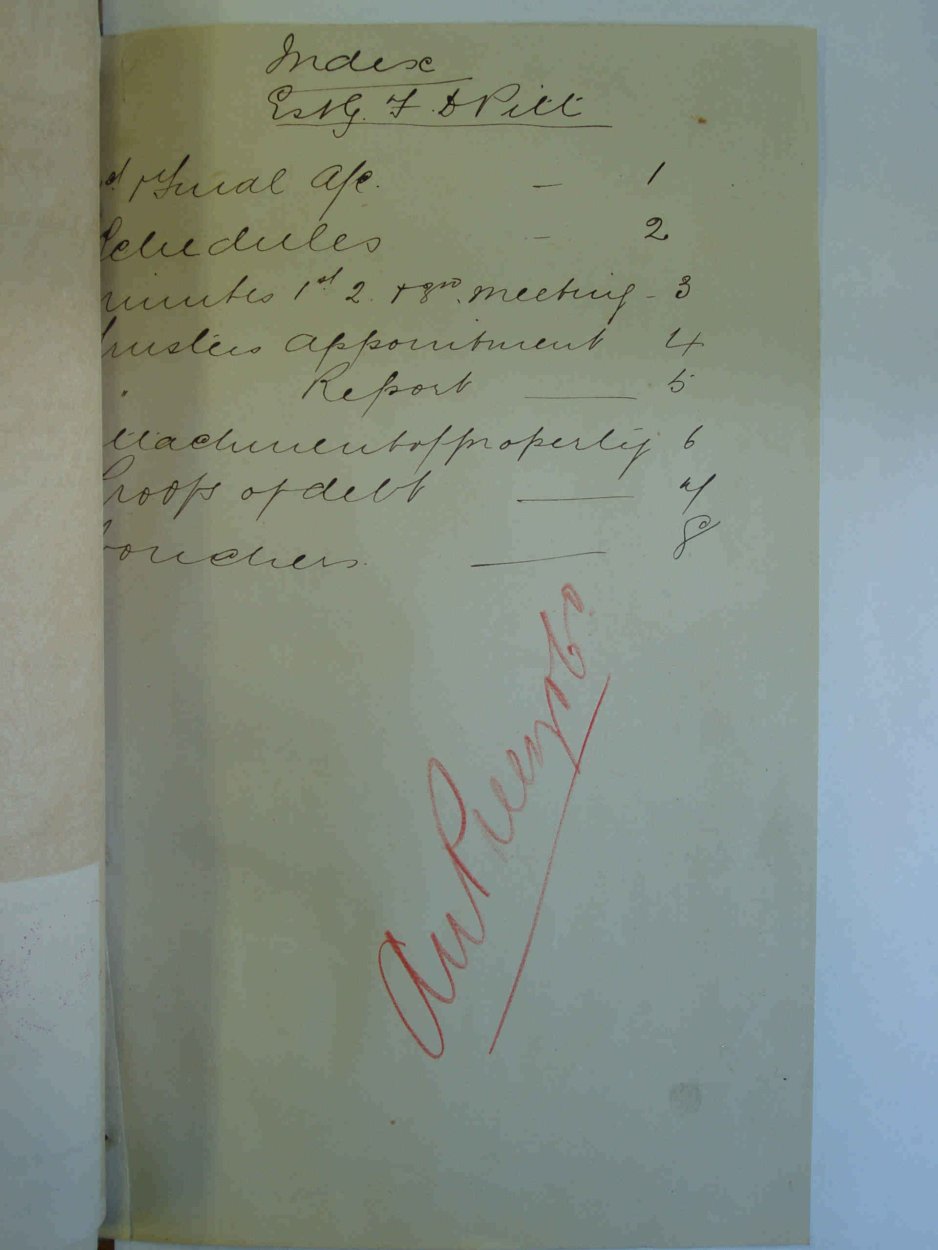 Index
Est G. F. D Pitt
st & Final A/c. — 1
Schedules — 2
minutes 1st 2. & 3rd. meeting - 3
Trustees appointment 4
" Report — 5
ttachment of property 6
Proofs of debt — 7
Vouchers — 8